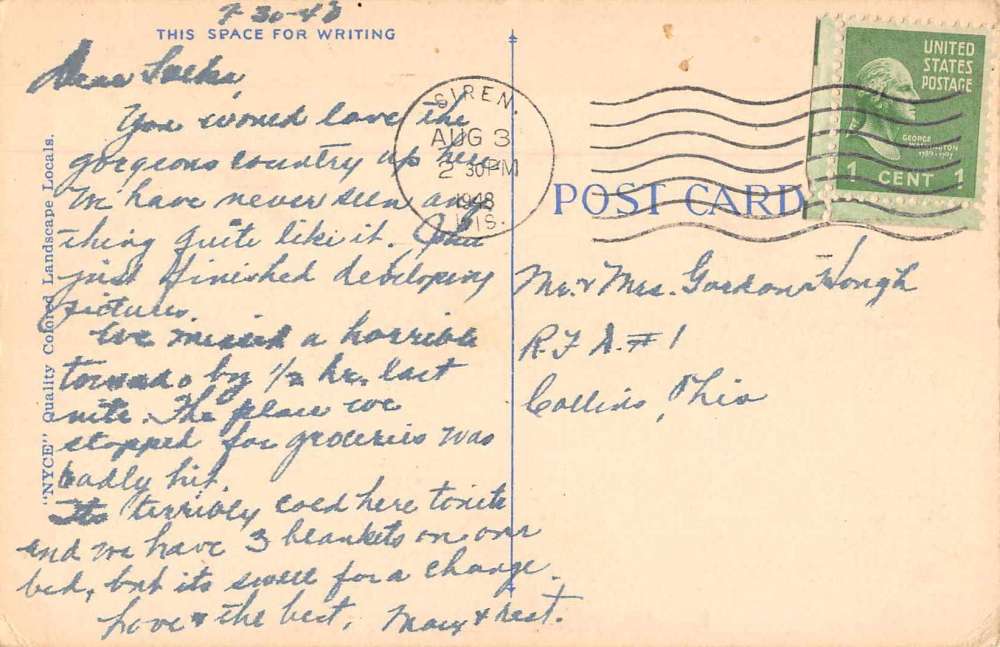 7-30-48
THIS SPACE FOR WRITING
Dear Folks,
You would love the
gorgeous country up here.
We have never seen any-
thing quite like it. John
just finished developing
pictures.
We missed a horrible
tornado by 1/2 hr. last
nite. The place we
stopped for groceries was
badly hit.
Its terribly cold here tonite
and we have 3 blankets on our
bed, but its swell for a change.
Love & the best, Mary & rest.
"NYCE" Quality Colored Landscape Locals.
SIREN,
AUG 3
2 30 PM
1948
WIS.
UNITED
STATES
POSTAGE
GEORGE
WASHINGTON
1789-1797
1 CENT 1
POST CARD
Mr. & Mrs. Gordon Hough
R.F.D. #1
Collins, Ohio